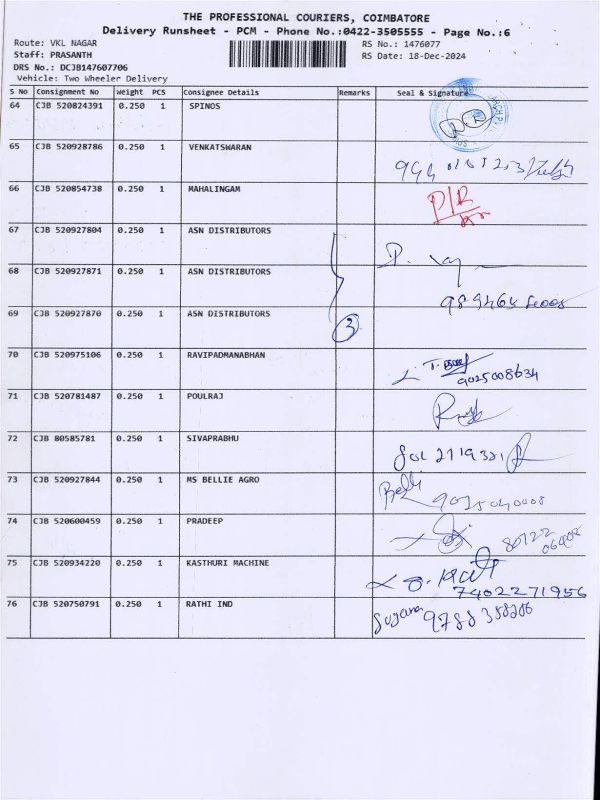 THE PROFESSIONAL COURIERS, COIMBATORE
Delivery Runsheet - PCM - Phone No.:0422-3505555 - Page No.:6
Route: VKL NAGAR RS No.: 1476077
Staff: PRASANTH RS Date: 18-Dec-2024
DRS No.: DCJB147607706
Vehicle: Two Wheeler Delivery
S No Consignment No Weight PCS Consignee Details Remarks Seal & Signature
64 CJB 520824391 0.250 1 SPINOS
65 CJB 520928786 0.250 1 VENKATSWARAN
66 CJB 520854738 0.250 1 MAHALINGAM
D/R
67 CJB 520927804 0.250 1 ASN DISTRIBUTORS
68 CJB 520927871 0.250 1 ASN DISTRIBUTORS
69 CJB 520927870 0.250 1 ASN DISTRIBUTORS
3
70 CJB 520975106 0.250 1 RAVIPADMANABHAN
9025008634
71 CJB 520781487 0.250 1 POULRAJ
72 CJB 80585781 0.250 1 SIVAPRABHU
73 CJB 520927844 0.250 1 MS BELLIE AGRO
74 CJB 520600459 0.250 1 PRADEEP
75 CJB 520934220 0.250 1 KASTHURI MACHINE
7402271956
76 CJB 520750791 0.250 1 RATHI IND